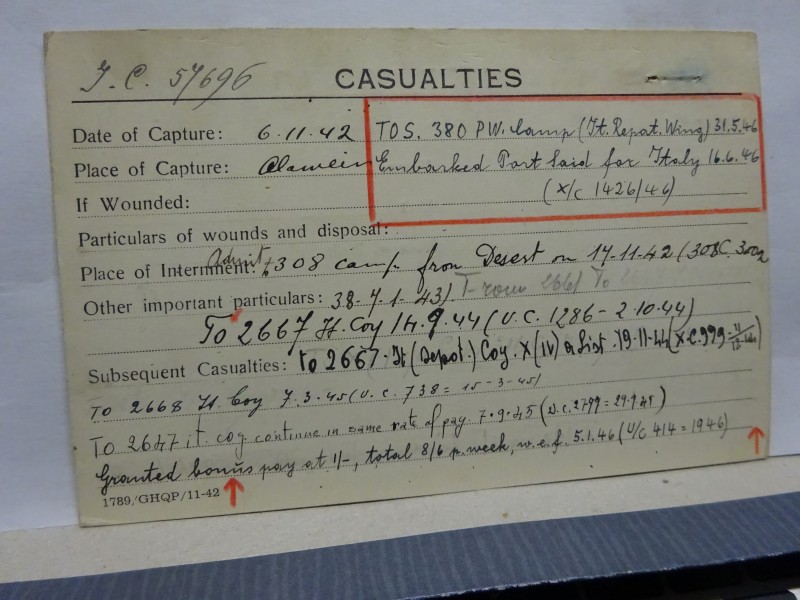 I.C. 57696
CASUALTIES
Date of Capture: 6.11.42
TOS. 380 PW. Camp (It. Repat. Wing) 31.5.46
Place of Capture: Alamein
Embarked Port Said for Italy 16.6.46
(X/c 1426/46)
If Wounded:
Particulars of wounds and disposal:
Place of Internment: Admit. 308 camp from Desert on 17-11-42 (308C.
Other important particulars: 38-7-1-43)
To 2667 It. Coy 14.9.44 (U.C. 1286 - 2.10.44)
Subsequent Casualties: To 2667. It (Depot.) Coy. X (IV) a list. 19-11-44 (X.C. 999
TO 2668 It Coy 7.3.45 (U.C. 738 = 15-3-45)
TO 2647 it. coy continue in same rate of pay 7.9.45 (U.C. 2799 = 29.9.45)
Granted bonus pay at 1/-, total 8/6 p. week, w.e.f. 5.1.46 (U/C 414 = 1946)
1789/GHQP/11-42